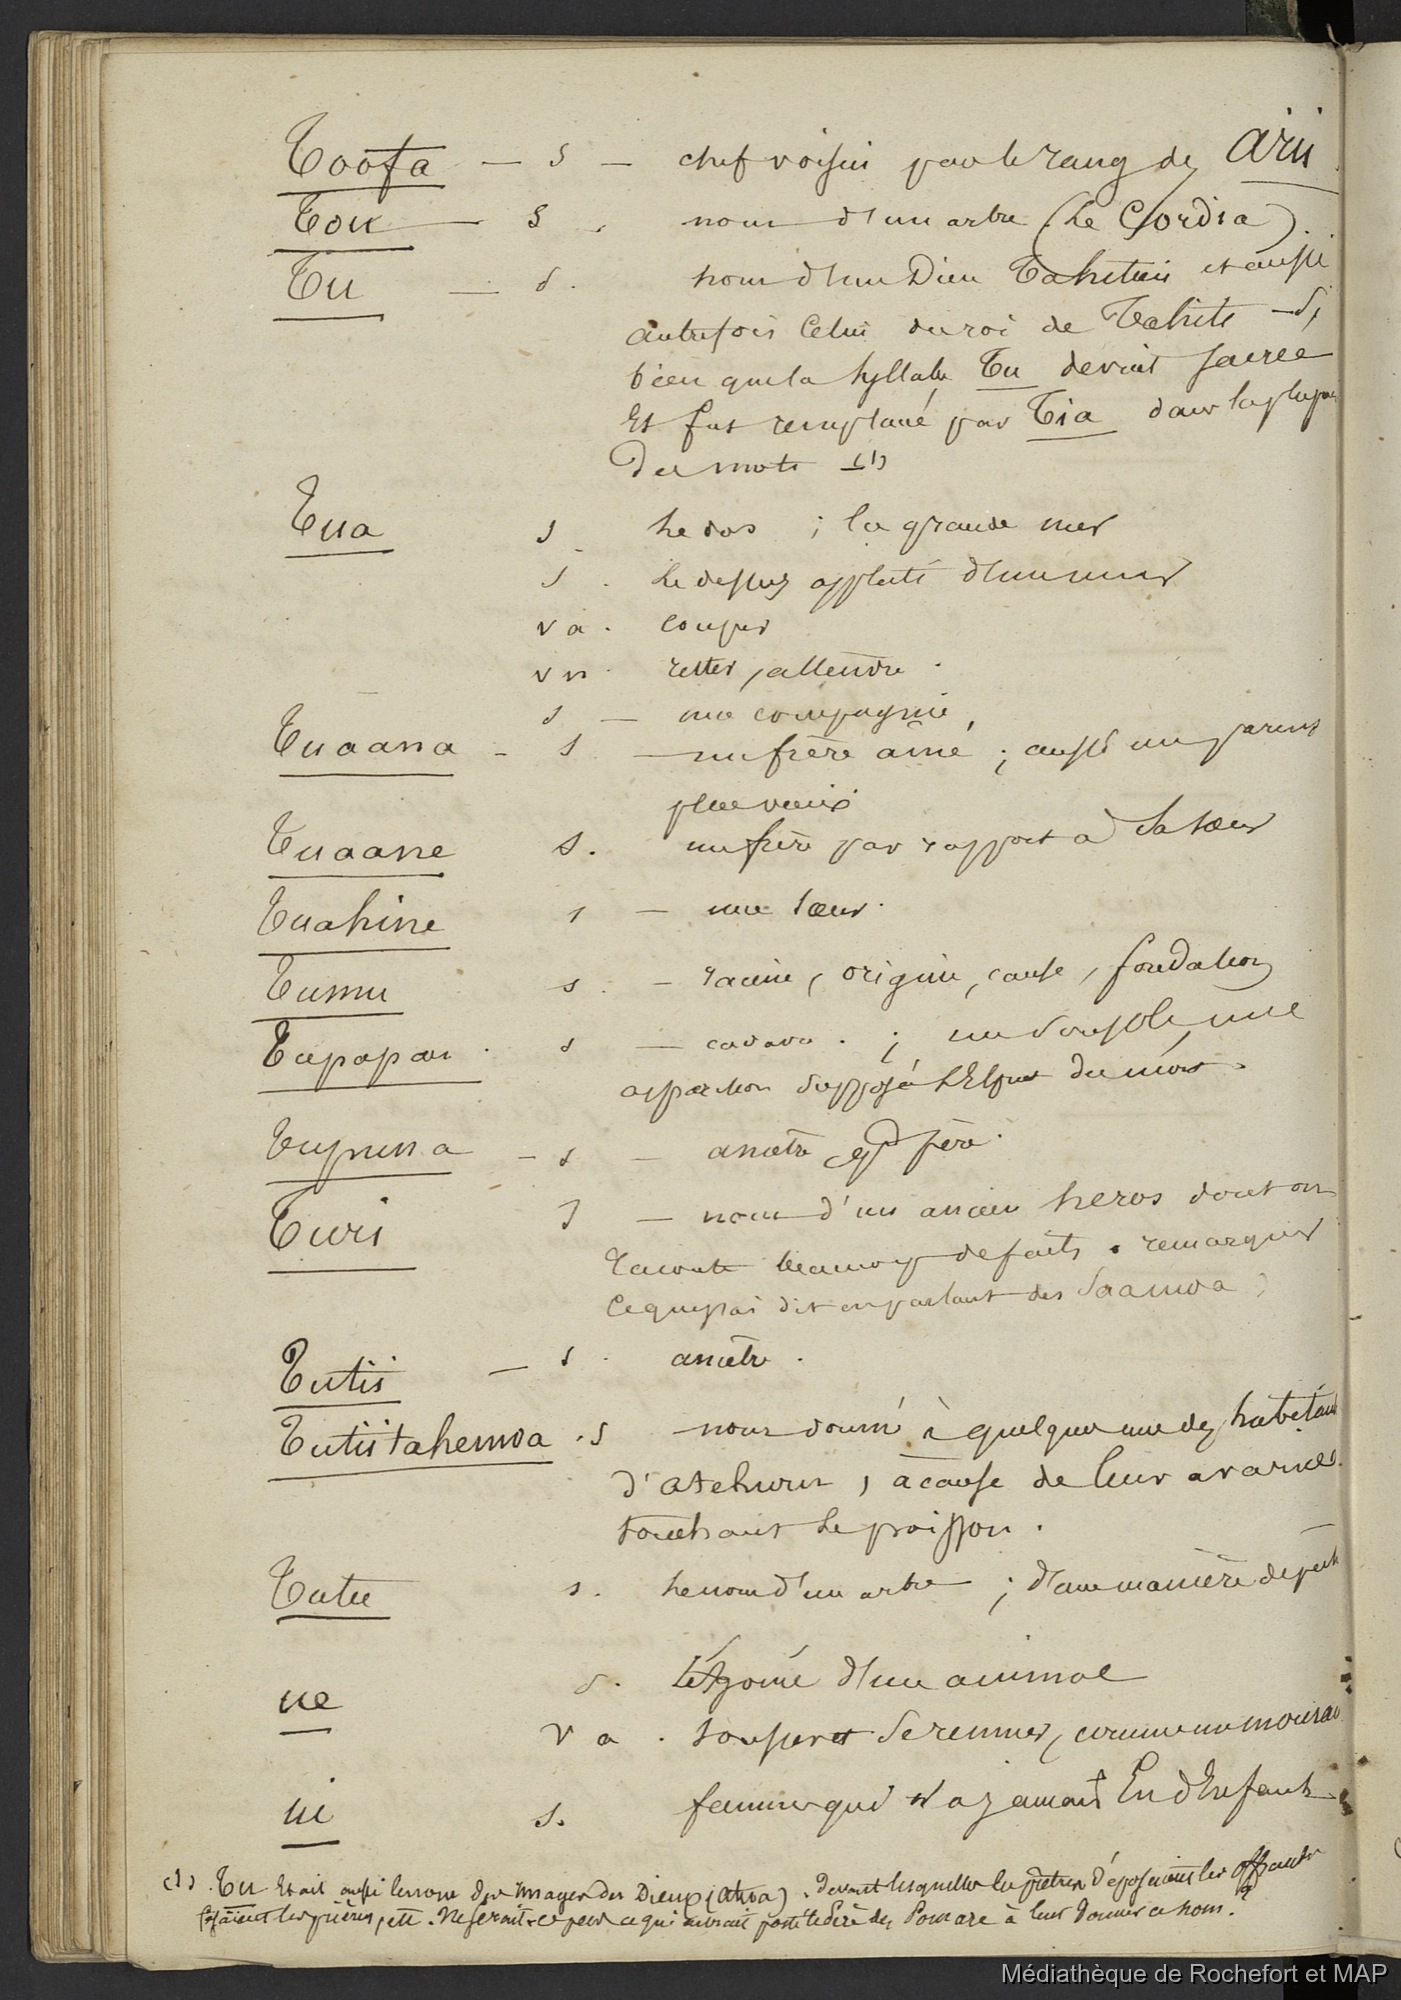 Toofa — s — chef voisin par le rang des Arii
Tou — s. nom d'un arbre (Le Cordia).
Tu — s. nom d'un Dieu Tahitien et aussi
autrefois Celui du roi de Tahiti — Si
bien que la syllabe Tu devint sacrée
et fut remplacé par Tia dans la plupar
des mots (1)
Tua s le dos ; la grande mer
s. Le dessus applati d'un mur
v a. couper
v n. rester, attendre.
s — une compagnie
Tuaana — s — un frère aîné ; aussi un parent
plus vieux
Tuaane s. un frère par rapport à sa soeur
Tuahine s — une soeur.
Tumu s. — racine, origine, cause, fondation
Tupapau s — cadavre. ; une
apparition supposée l'Esprit du mort.
Tupuna — s — ancêtre gd père.
Turi s — nom d'un ancien heros dont on
raconte beaucoup de faits. remarquer
ce que j'ai dit en parlant des Saamoa)
Tutii — s. ancêtre.
Tutiitahemoa . s nom donné à quelques uns des habitans
d'Atehuru, à cause de leur avarice
touchant le poisson.
Tutu s. le nom d'un arbre ; d'une manière de pech
ue s. L'Agonie d'un animal
v a. Se remuer, comme un mouran
ui s. femme qui n'a jamais Eu d'Enfants
(1). Tu était aussi le nom des images des Dieux (Atua). devant lesquelles les prêtres déposaient les offrandes
faisaient les prières, ett. Ne serait-ce pas ce qui aurait porté le Père des Pomare à leur donner ce nom ?
Médiathèque de Rochefort et MAP